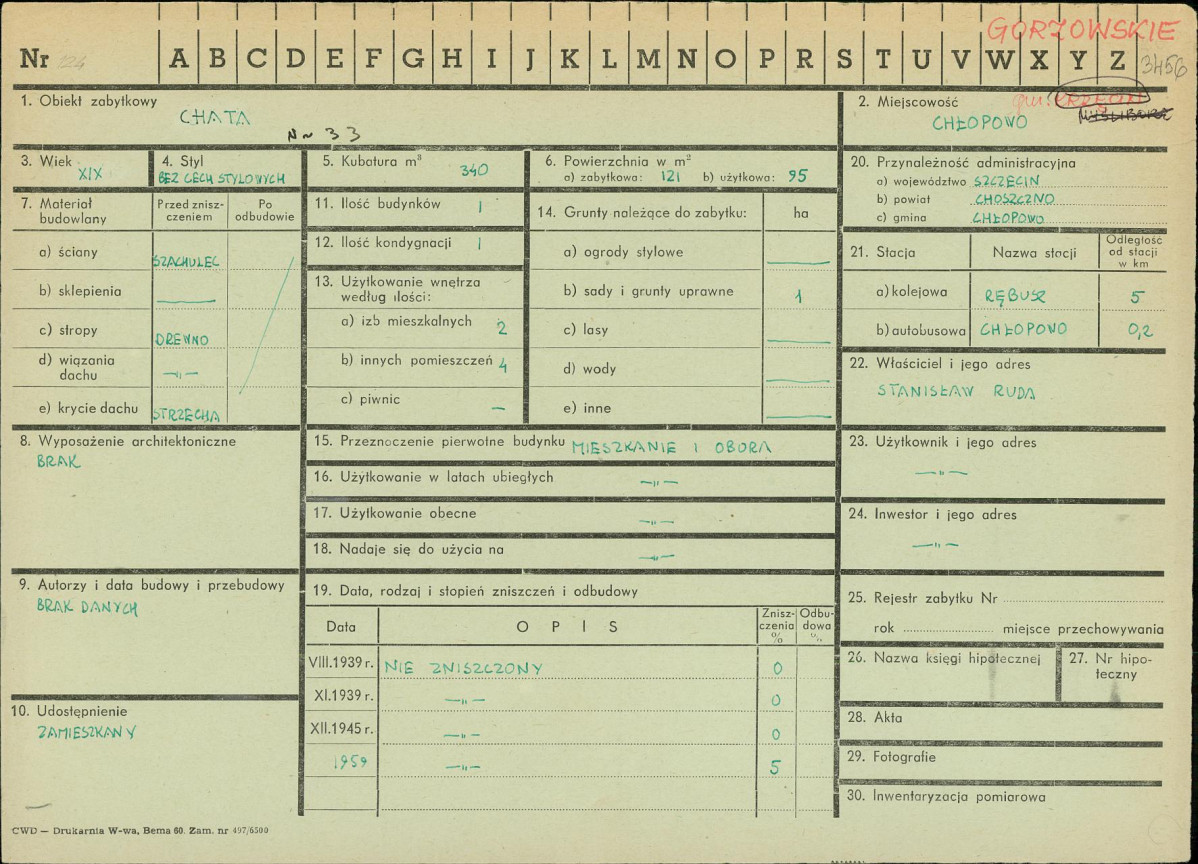 GORZOWSKIE
Nr 124 A B C D E F G H I J K L M N O P R S T U V W X Y Z 3456
1. Obiekt zabytkowy
CHATA
Nr 33
2. Miejscowość gm. KRZĘCIN
CHŁOPOWO MYŚLIBÓRZ
3. Wiek
XIX
4. Styl
BEZ CECH STYLOWYCH
5. Kubatura m³ 340
6. Powierzchnia w m²
a) zabytkowa: 121 b) użytkowa: 95
20. Przynależność administracyjna
a) województwo SZCZECIN
b) powiat CHOSZCZNO
c) gmina CHŁOPOWO
7. Materiał budowlany
Przed znisz-
czeniem
Po
odbudowie
a) ściany SZACHULEC
b) sklepienia —
c) stropy DREWNO
d) wiązania
dachu —„—
e) krycie dachu STRZECHA
11. Ilość budynków 1
12. Ilość kondygnacji 1
13. Użytkowanie wnętrza
według ilości:
a) izb mieszkalnych 2
b) innych pomieszczeń 4
c) piwnic —
14. Grunty należące do zabytku: ha
a) ogrody stylowe —
b) sady i grunty uprawne 1
c) lasy —
d) wody —
e) inne —
21. Stacja Nazwa stacji
Odległość
od stacji
w km
a) kolejowa RĘBUSZ 5
b) autobusowa CHŁOPOWO 0,2
22. Właściciel i jego adres
STANISŁAW RUDA
8. Wyposażenie architektoniczne
BRAK
15. Przeznoczenie pierwotne budynku MIESZKANIE I OBORA
16. Użytkowanie w latach ubiegłych —„—
17. Użytkowanie obecne —„—
18. Nadaje się do użycia na —„—
23. Użytkownik i jego adres
—„—
24. Inwestor i jego adres
—„—
9. Autorzy i data budowy i przebudowy
BRAK DANYCH
19. Data, rodzaj i stopień zniszczeń i odbudowy
Data OPIS
Znisz-
czenia
%
Odbu-
dowa
%
VIII.1939 r. NIE ZNISZCZONY 0
XI.1939 r. —„— 0
XII.1945 r. —„— 0
1959 —„— 5
25. Rejestr zabytku Nr
rok miejsce przechowywania
26. Nazwa księgi hipotecznej
27. Nr hipo-
teczny
10. Udostępnienie
ZAMIESZKANY
28. Akta
29. Fotografie
30. Inwentaryzacja pomiarowa
CWD — Drukarnia W-wa, Bema 60. Zam. nr 497/6500